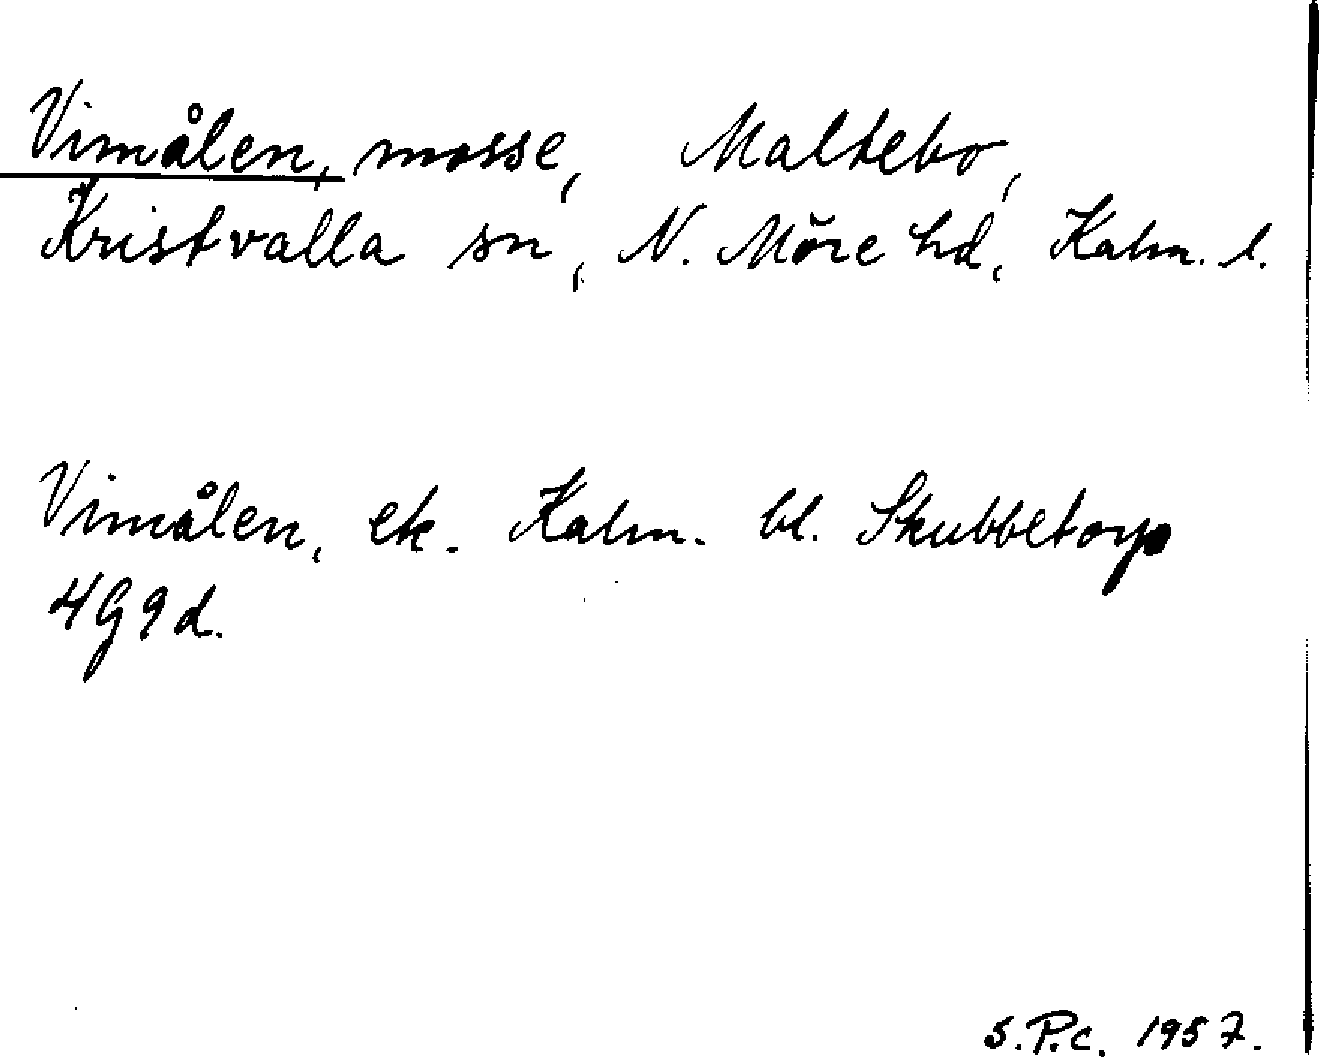 Vimålen, mosse, Maltebo,
Kristvalla sn, N. Möre hd, Kalm. l.
Vimålen, ek. Kalm. bl. Skubbetorp
4G9d.
S.P.c. 1957.